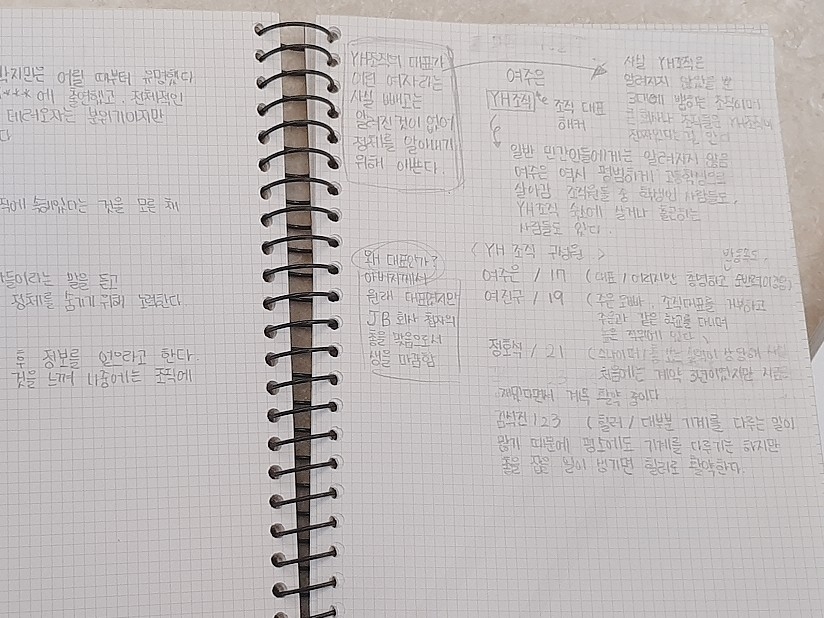 박지만은 어릴 때부터 유명했다
에 출연했고, 전체적인
테려오자는 분위기이지만
다
직에 속해있다는 것을 모른 채
들이라는 말을 듣고
정체를 숨기기 위해 노력한다.
후 정보를 얻으라고 한다.
것을 느껴 나중에는 조직에
YH조직의 대표가
어린 여자라는
사실 빼고는
알려진 것이 없어
정체를 알아내기
위해 애쓴다.
여주은
YH조직 조직 대표
해커
사실 YH조직은
알려지지 않았을 뿐
3대에
일반 민간인들에게는 알려지지 않은
여주은 역시 평범하게 고등학생으로
살아감 조직원들 중 학생인 사람들도,
YH조직 숙소에 살거나 출근하는
사람들도 있다.
왜 대표인가?
아버지께서
원래 대표였지만
JB 회사 첩자의
총을 맞음으로서
생을 마감함
< YH 조직 구성원 >
반응속도
여주은 / 17 ( 대표 / 어리지만 총명하고
여진구 / 19 ( 주은 오빠, 조직대표를 거부하고
주은과 같은 학교를 다니며
높은 직위에 있다 )
정호석 / 21 ( 스나이퍼 /
처음에는 계약 3년이었지만
재밌다면서 계속 활약 중이다
김석진 / 23 ( 힐러 / 대부분 기계를 다루는 일이
많기 때문에 평소에도 기계를 다루기는 하지만
총을 잡을 일이 생기면 힐러로 활약한다.